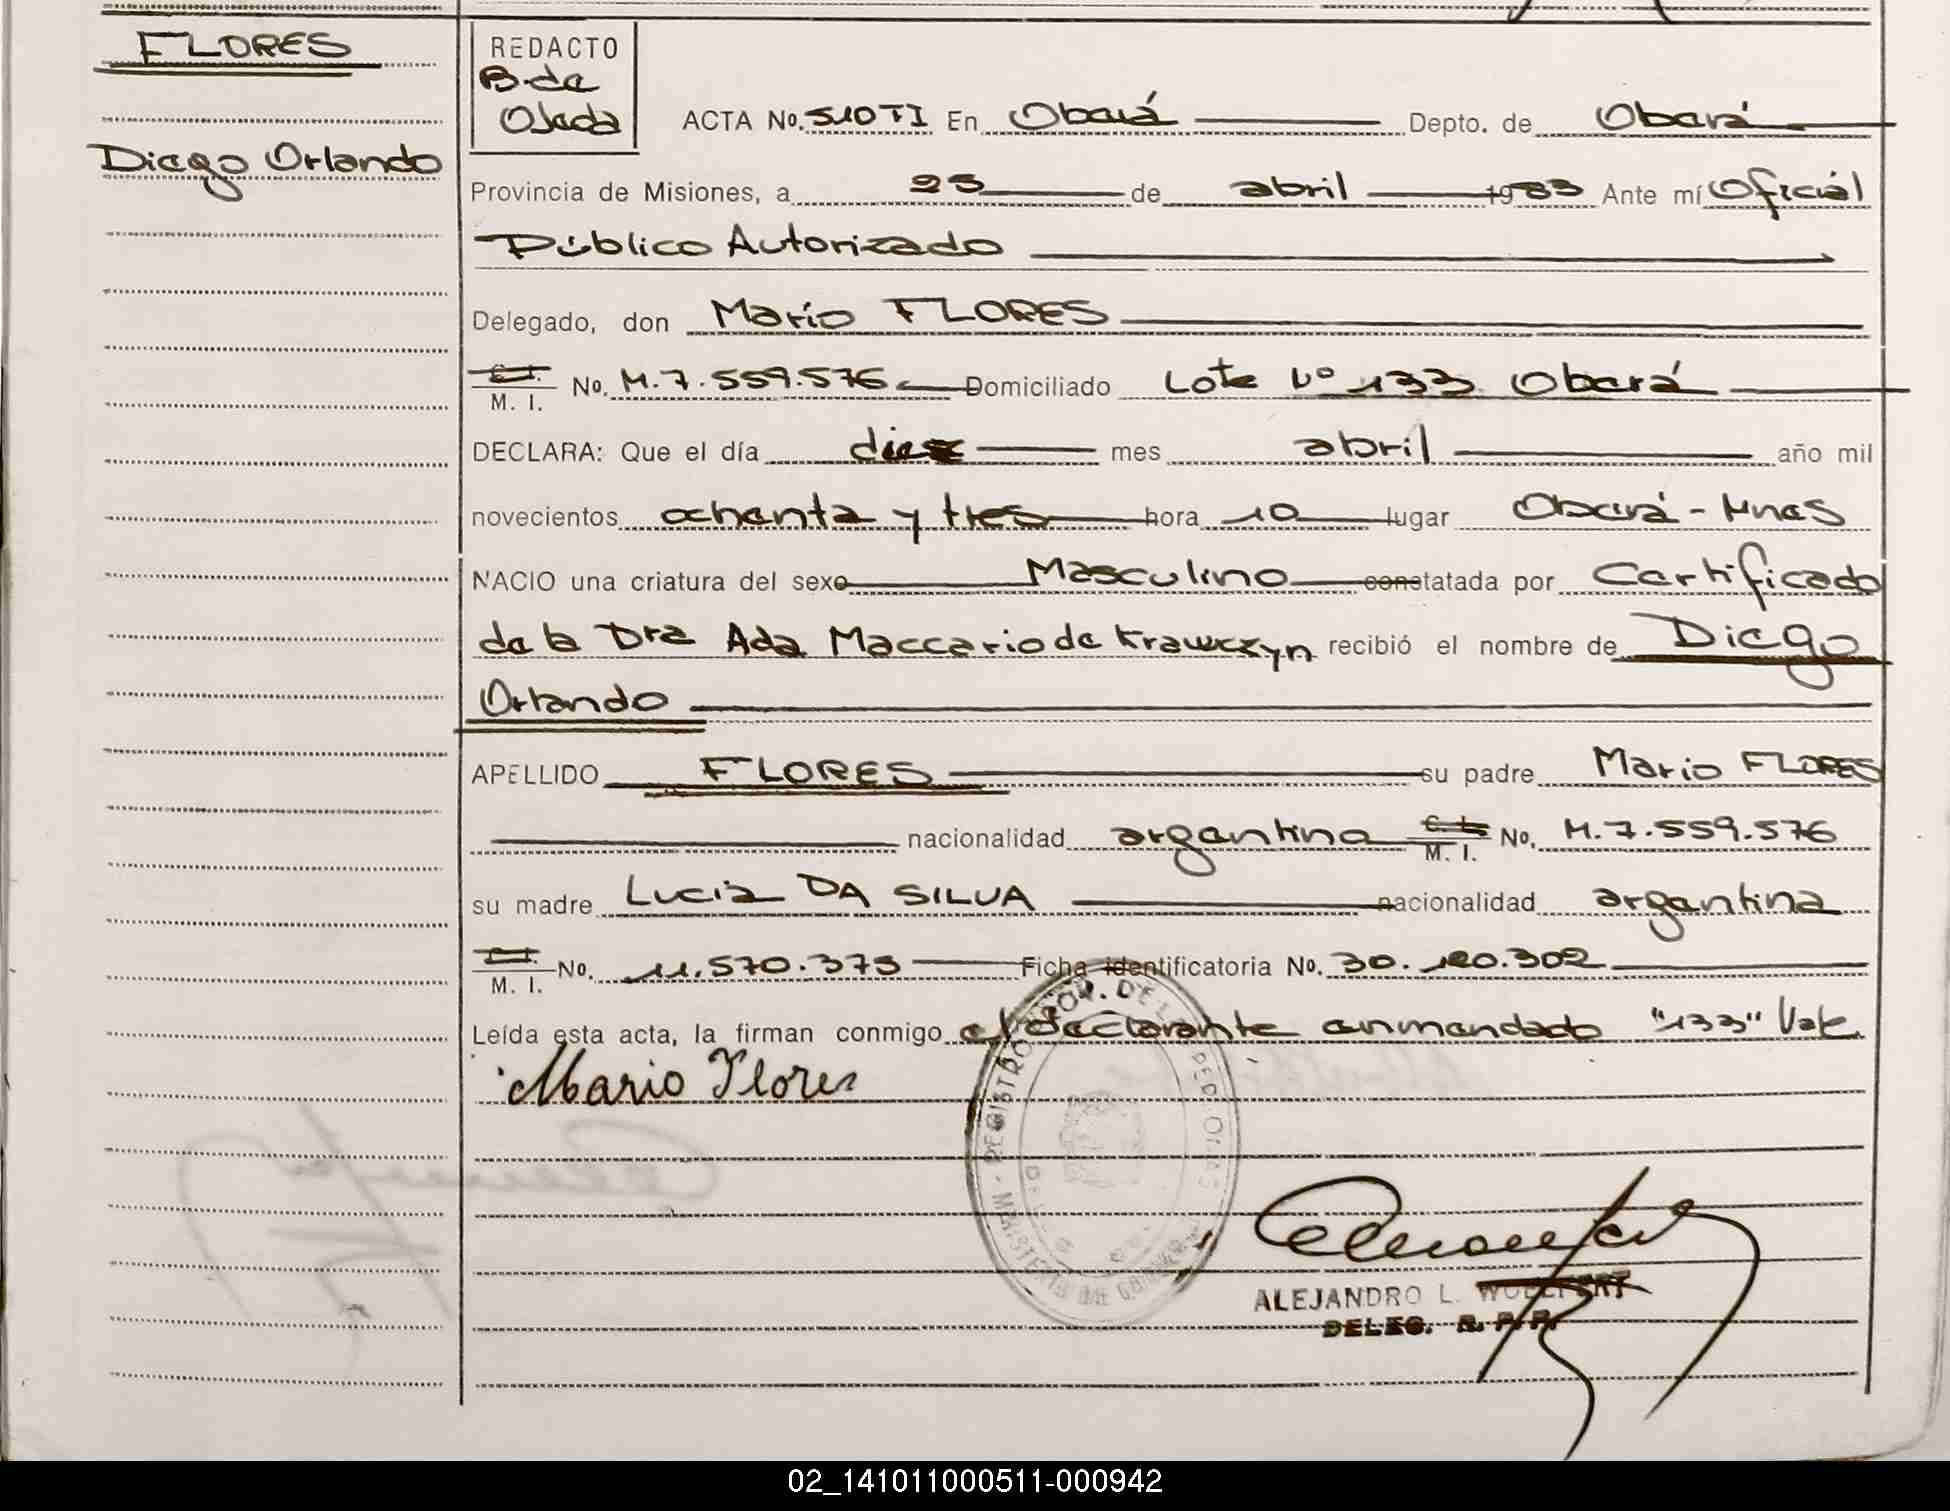 FLORES
Diego Orlando
REDACTO
B. de
Ojeda
ACTA No. 510 TI En Oberá Depto. de Oberá
Provincia de Misiones, a 25 de abril 1983 Ante mí Oficial
Público Autorizado
Delegado, don Mario FLORES
C.I. M. I. No. M.7.559.576 Domiciliado Lote Nº 133 Oberá
DECLARA: Que el día diez mes abril año mil
novecientos ochenta y tres hora 10 lugar Oberá - Mnes
NACIO una criatura del sexo Masculino constatada por Certificado
de la Dra Ada Maccario de Krawczyn recibió el nombre de Diego
Orlando
APELLIDO FLORES su padre Mario FLORES
nacionalidad argentina C.I. M. I. No. M.7.559.576
su madre Lucia DA SILVA nacionalidad argentina
C.I. M. I. No. 11.570.373 Ficha identificatoria No. 30.120.302
Leída esta acta, la firman conmigo el declarante enmendado "133" Vale
Mario Flores
ALEJANDRO L. WOELFERT
DELEG. R. P. P.
02_141011000511-000942